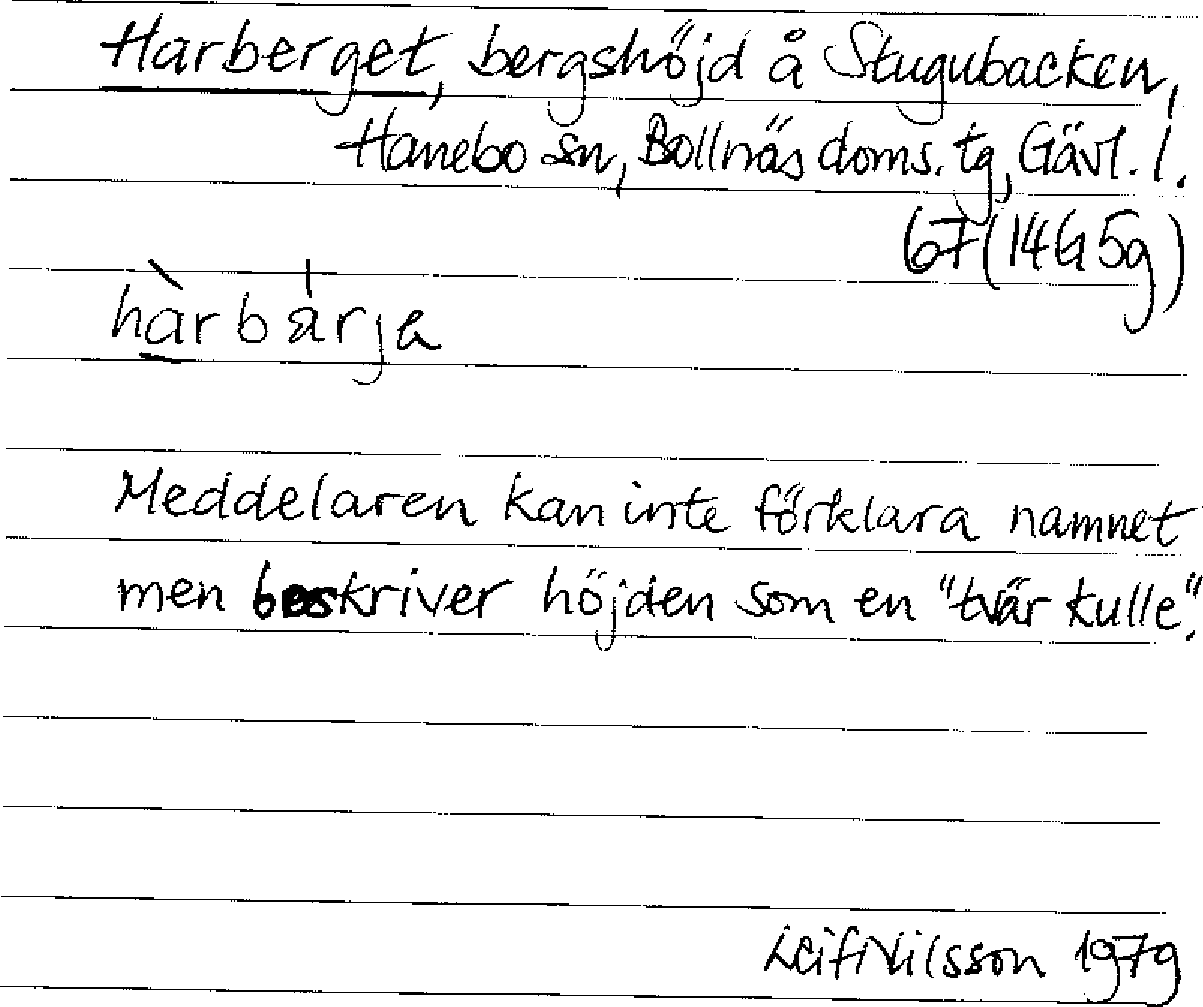 Harberget, bergshöjd å Stugubacken,
Hanebo sn, Bollnäs doms. tg, Gävl. l.
67 (14G 5g)
hàrbárja
Meddelaren kan inte förklara namnet
men beskriver höjden som en "tvär kulle".
Leif Nilsson 1979